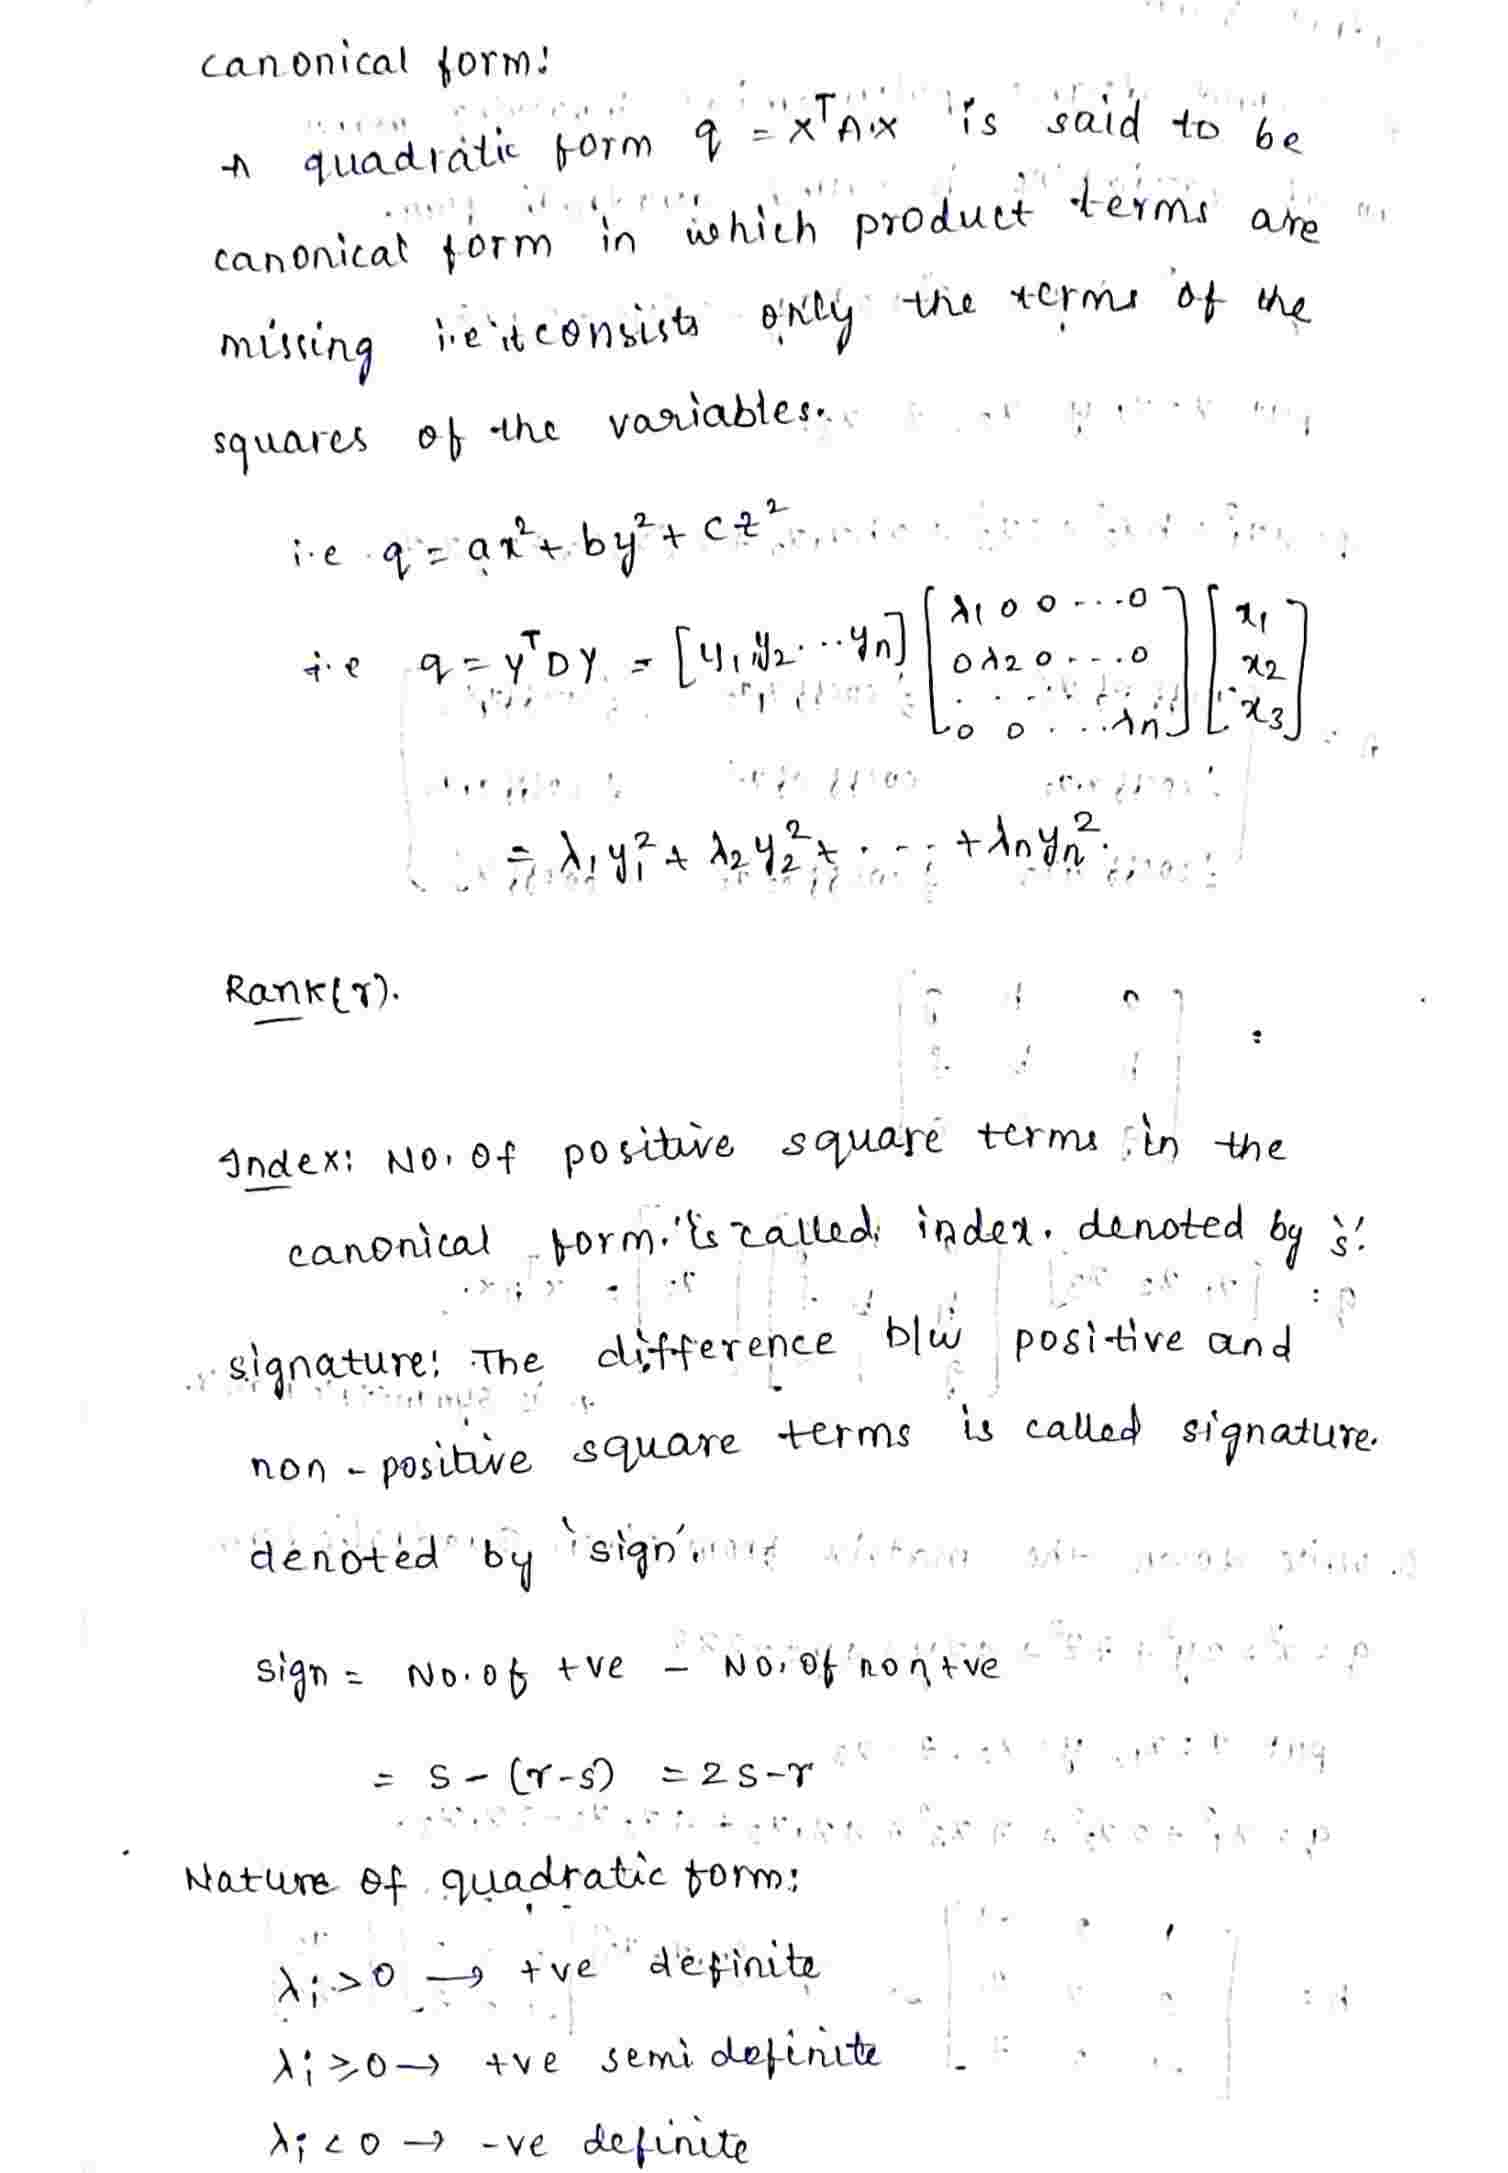 canonical form:
A quadratic form q = X^T A X is said to be
canonical form in which product terms are
missing i.e it consists only the terms of the
squares of the variables.
i.e q = ax² + by² + cz²
i.e q = Y^T D Y = [y₁ y₂ ... yₙ] [λ₁ 0 0 ... 0 / 0 λ₂ 0 ... 0 / . . . . / 0 0 ... λₙ] [x₁ / x₂ / x₃]
= λ₁y₁² + λ₂y₂² + ... + λₙyₙ².
Rank(r).
Index: No. of positive square terms in the
canonical form. is called index. denoted by 's'.
signature: The difference b/w positive and
non-positive square terms is called signature.
denoted by 'sign'.
sign = No. of +ve - No. of non +ve
= s - (r-s) = 2s-r
Nature of quadratic form:
λᵢ > 0 → +ve definite
λᵢ ≥ 0 → +ve semi definite
λᵢ < 0 → -ve definite